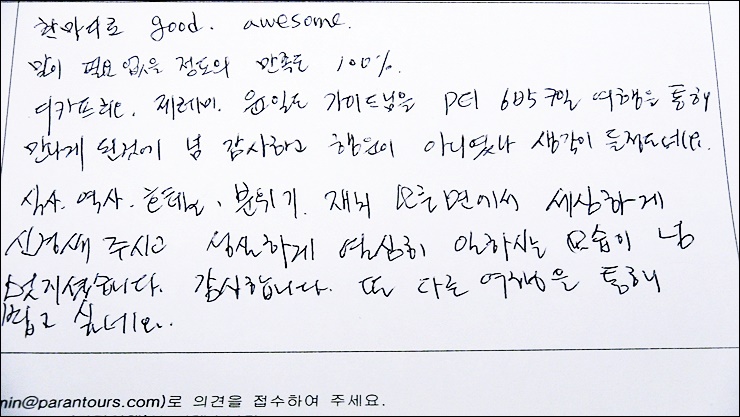 한마디로 good. awesome.
말이 필요 없을 정도의 만족도 100%.
디카프리오, 제레미, 윤일도 가이드님을 PEI 6박5일 여행을 통해
만나게 된것에 넘 감사하고 행운이 아니였나 생각이 들정도네요.
식사. 역사. 호텔. 분위기. 재치 모든면에서 세심하게
신경써 주시고 성실하게 열심히 일하시는 모습이 넘
멋지셨습니다. 감사합니다. 또 다른 여행을 통해
뵙고 싶네요.
min@parantours.com)로 의견을 접수하여 주세요.